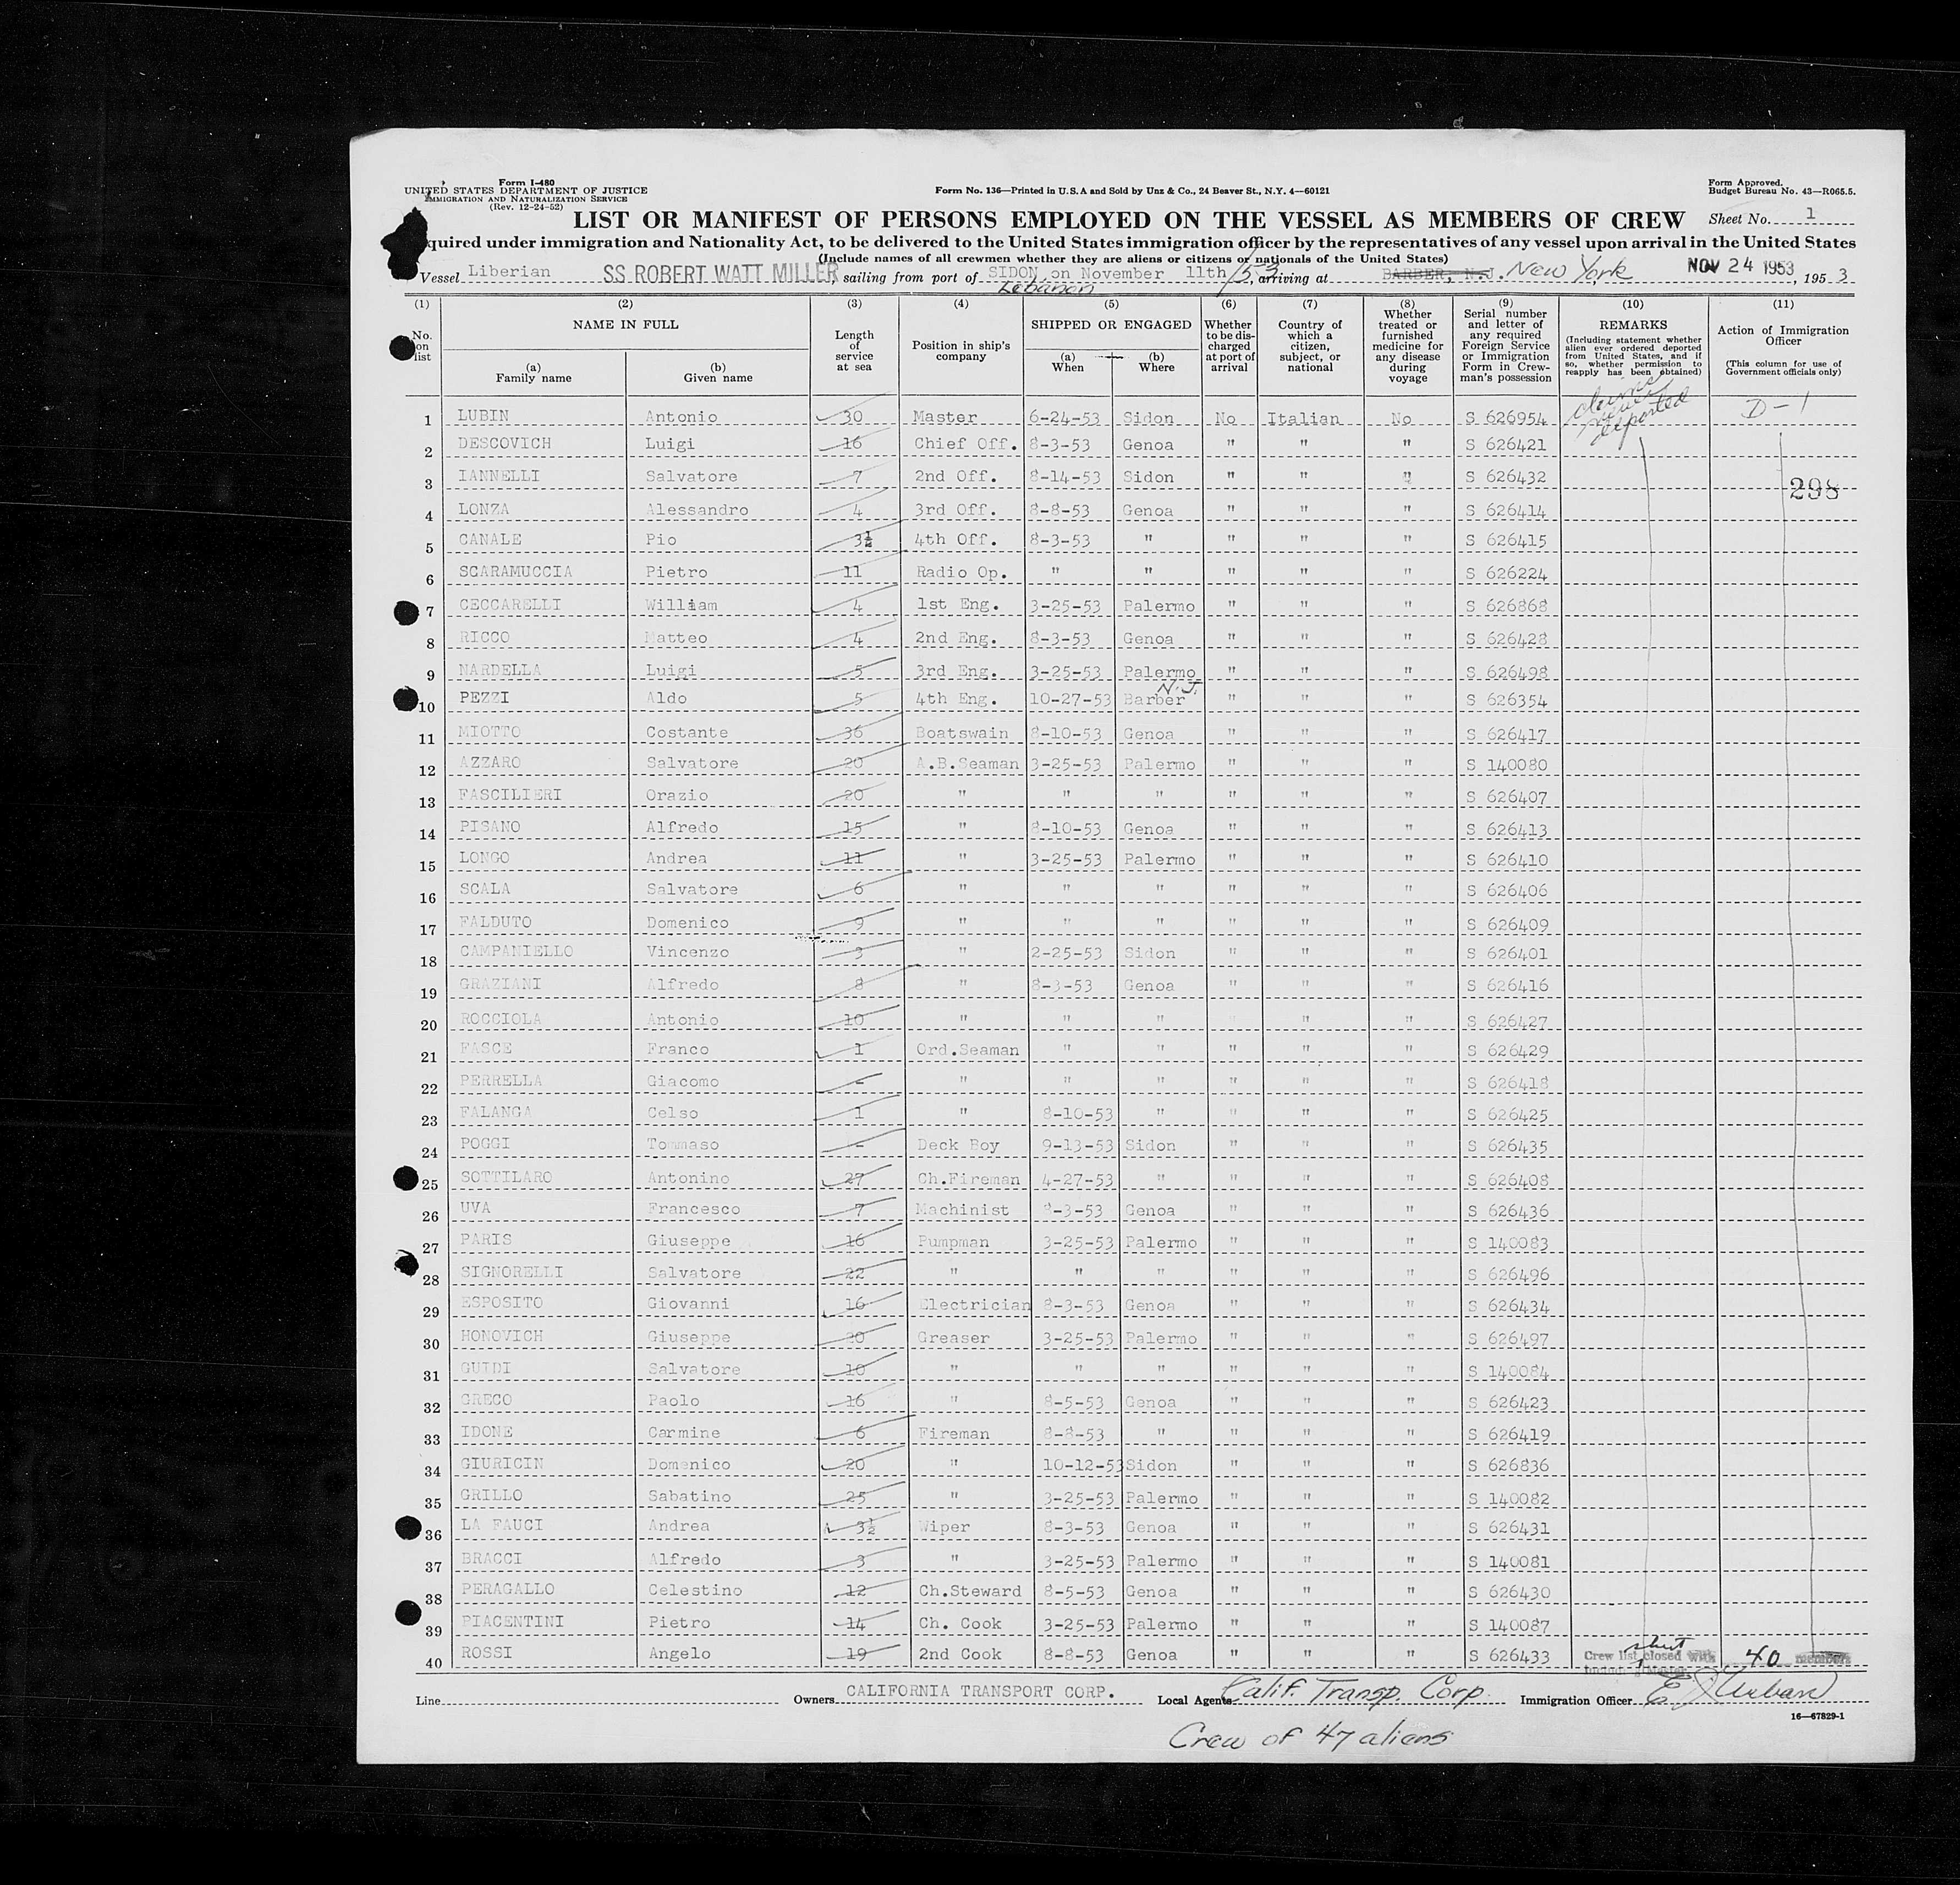 Form I-480
UNITED STATES DEPARTMENT OF JUSTICE
IMMIGRATION AND NATURALIZATION SERVICE
(Rev. 12-24-52)
Form No. 136—Printed in U.S.A and Sold by Unz & Co., 24 Beaver St., N.Y. 4—60121
Form Approved.
Budget Bureau No. 43—R065.5.
LIST OR MANIFEST OF PERSONS EMPLOYED ON THE VESSEL AS MEMBERS OF CREW
Sheet No. 1
quired under immigration and Nationality Act, to be delivered to the United States immigration officer by the representatives of any vessel upon arrival in the United States
(Include names of all crewmen whether they are aliens or citizens or nationals of the United States)
Vessel Liberian SS ROBERT WATT MILLER, sailing from port of SIDON, on November 11th/53, arriving at BARBER, N.J. New York NOV 24 1953, 195 3
Lebanon
(1) (2) (3) (4) (5) (6) (7) (8) (9) (10) (11)
No. on list
NAME IN FULL
(a) Family name
(b) Given name
Length of service at sea
Position in ship's company
SHIPPED OR ENGAGED
(a) When
(b) Where
Whether to be discharged at port of arrival
Country of which a citizen, subject, or national
Whether treated or furnished medicine for any disease during voyage
Serial number and letter of any required Foreign Service or Immigration Form in Crewman's possession
REMARKS
(Including statement whether alien ever ordered deported from United States, and if so, whether permission to reapply has been obtained)
Action of Immigration Officer
(This column for use of Government officials only)
1 LUBIN Antonio 30 Master 6-24-53 Sidon No Italian No S 626954 claims never deported D-1
2 DESCOVICH Luigi 16 Chief Off. 8-3-53 Genoa " " " S 626421
3 IANNELLI Salvatore 7 2nd Off. 8-14-53 Sidon " " " S 626432 298
4 LONZA Alessandro 4 3rd Off. 8-8-53 Genoa " " " S 626414
5 CANALE Pio 3½ 4th Off. 8-3-53 " " " " S 626415
6 SCARAMUCCIA Pietro 11 Radio Op. " " " " " S 626224
7 CECCARELLI William 4 1st Eng. 3-25-53 Palermo " " " S 626868
8 RICCO Matteo 4 2nd Eng. 8-3-53 Genoa " " " S 626428
9 NARDELLA Luigi 5 3rd Eng. 3-25-53 Palermo " " " S 626498
10 PEZZI Aldo 5 4th Eng. 10-27-53 Barber N.J. " " " S 626354
11 MIOTTO Costante 36 Boatswain 8-10-53 Genoa " " " S 626417
12 AZZARO Salvatore 20 A.B.Seaman 3-25-53 Palermo " " " S 140080
13 FASCILIERI Orazio 20 " " " " " " S 626407
14 PISANO Alfredo 15 " 8-10-53 Genoa " " " S 626413
15 LONGO Andrea 11 " 3-25-53 Palermo " " " S 626410
16 SCALA Salvatore 6 " " " " " " S 626406
17 FALDUTO Domenico 9 " " " " " " S 626409
18 CAMPANIELLO Vincenzo 3 " 2-25-53 Sidon " " " S 626401
19 GRAZIANI Alfredo 8 " 8-3-53 Genoa " " " S 626416
20 ROCCIOLA Antonio 10 " " " " " " S 626427
21 FASCE Franco 1 Ord.Seaman " " " " " S 626429
22 PERRELLA Giacomo - " " " " " " S 626418
23 FALANGA Celso 1 " 8-10-53 " " " " S 626425
24 POGGI Tommaso - Deck Boy 9-13-53 Sidon " " " S 626435
25 SOTTILARO Antonino 27 Ch.Fireman 4-27-53 " " " " S 626408
26 UVA Francesco 7 Machinist 8-3-53 Genoa " " " S 626436
27 PARIS Giuseppe 16 Pumpman 3-25-53 Palermo " " " S 140083
28 SIGNORELLI Salvatore 22 " " " " " " S 626496
29 ESPOSITO Giovanni 16 Electrician 8-3-53 Genoa " " " S 626434
30 HONOVICH Giuseppe 30 Greaser 3-25-53 Palermo " " " S 626497
31 GUIDI Salvatore 10 " " " " " " S 140084
32 GRECO Paolo 16 " 8-5-53 Genoa " " " S 626423
33 IDONE Carmine 6 Fireman 8-8-53 " " " " S 626419
34 GIURICIN Domenico 20 " 10-12-53 Sidon " " " S 626836
35 GRILLO Sabatino 25 " 3-25-53 Palermo " " " S 140082
36 LA FAUCI Andrea 3½ Wiper 8-3-53 Genoa " " " S 626431
37 BRACCI Alfredo 3 " 3-25-53 Palermo " " " S 140081
38 PERAGALLO Celestino 12 Ch.Steward 8-5-53 Genoa " " " S 626430
39 PIACENTINI Pietro 14 Ch. Cook 3-25-53 Palermo " " " S 140087
40 ROSSI Angelo 19 2nd Cook 8-8-53 Genoa " " " S 626433 Crew list sheet closed with 40 members
Line Owners CALIFORNIA TRANSPORT CORP. Local Agents Calif. Transp. Corp. Immigration Officer E J Urban
16—67829-1
Crew of 47 aliens